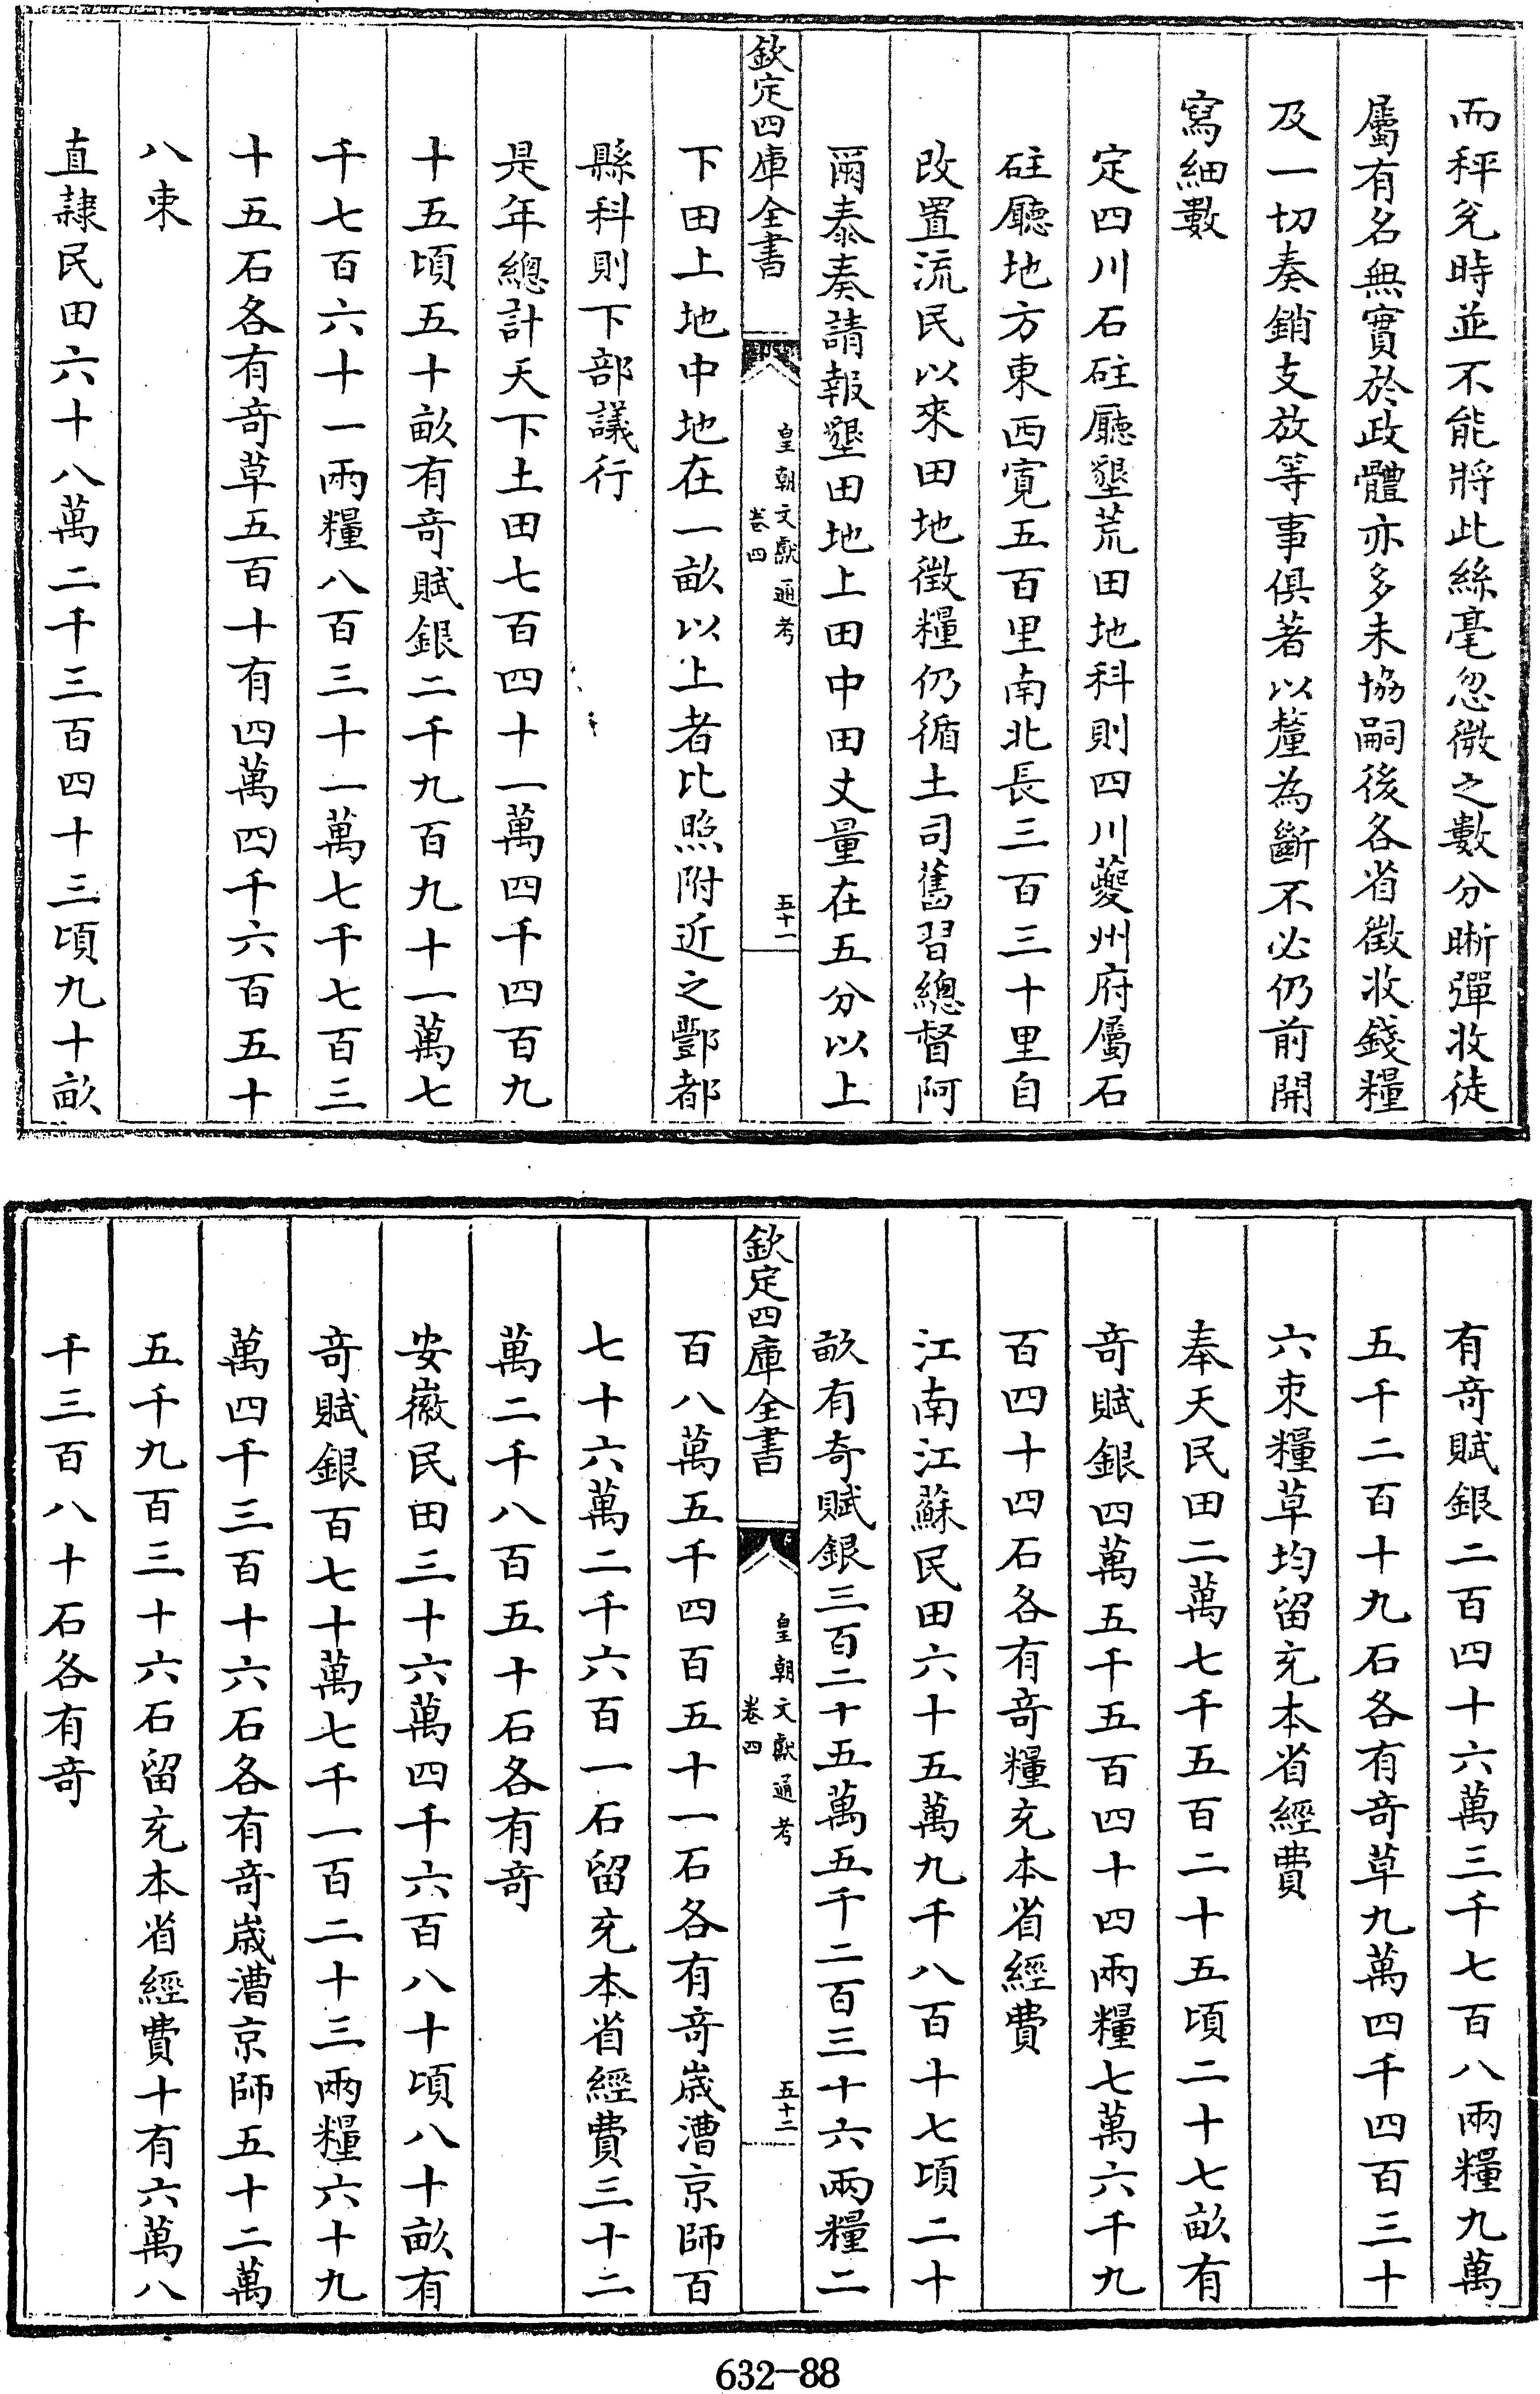 而秤兊時並不能將此絲毫忽微之數分晰彈收徒
屬有名無實於政體亦多未協嗣後各省徵收錢糧
及一切奏銷支放等事俱著以釐為斷不必仍前開
寫細數
定四川石砫廳墾荒田地科則四川夔州府屬石
砫廳地方東西寛五百里南北長三百三十里自
改置流民以來田地徵糧仍循土司舊習總督阿
爾泰奏請報墾田地上田中田丈量在五分以上
欽定四庫全書
皇朝文獻通考
卷四
五十一
下田上地中地在一畝以上者比照附近之酆都
縣科則下部議行
是年總計天下土田七百四十一萬四千四百九
十五頃五十畝有竒賦銀二千九百九十一萬七
千七百六十一兩糧八百三十一萬七千七百三
十五石各有竒草五百十有四萬四千六百五十
八束
直隷民田六十八萬二千三百四十三頃九十畝
有竒賦銀二百四十六萬三千七百八兩糧九萬
五千二百十九石各有竒草九萬四千四百三十
六束糧草均留充本省經費
奉天民田二萬七千五百二十五頃二十七畝有
竒賦銀四萬五千五百四十四兩糧七萬六千九
百四十四石各有竒糧充本省經費
江南江蘇民田六十五萬九千八百十七頃二十
畝有奇賦銀三百二十五萬五千二百三十六兩糧二
欽定四庫全書
皇朝文獻通考
卷四
五十二
百八萬五千四百五十一石各有竒歲漕京師百
七十六萬二千六百一石留充本省經費三十二
萬二千八百五十石各有竒
安徽民田三十六萬四千六百八十頃八十畝有
竒賦銀百七十萬七千一百二十三兩糧六十九
萬四千三百十六石各有竒歲漕京師五十二萬
五千九百三十六石留充本省經費十有六萬八
千三百八十石各有竒
632-88